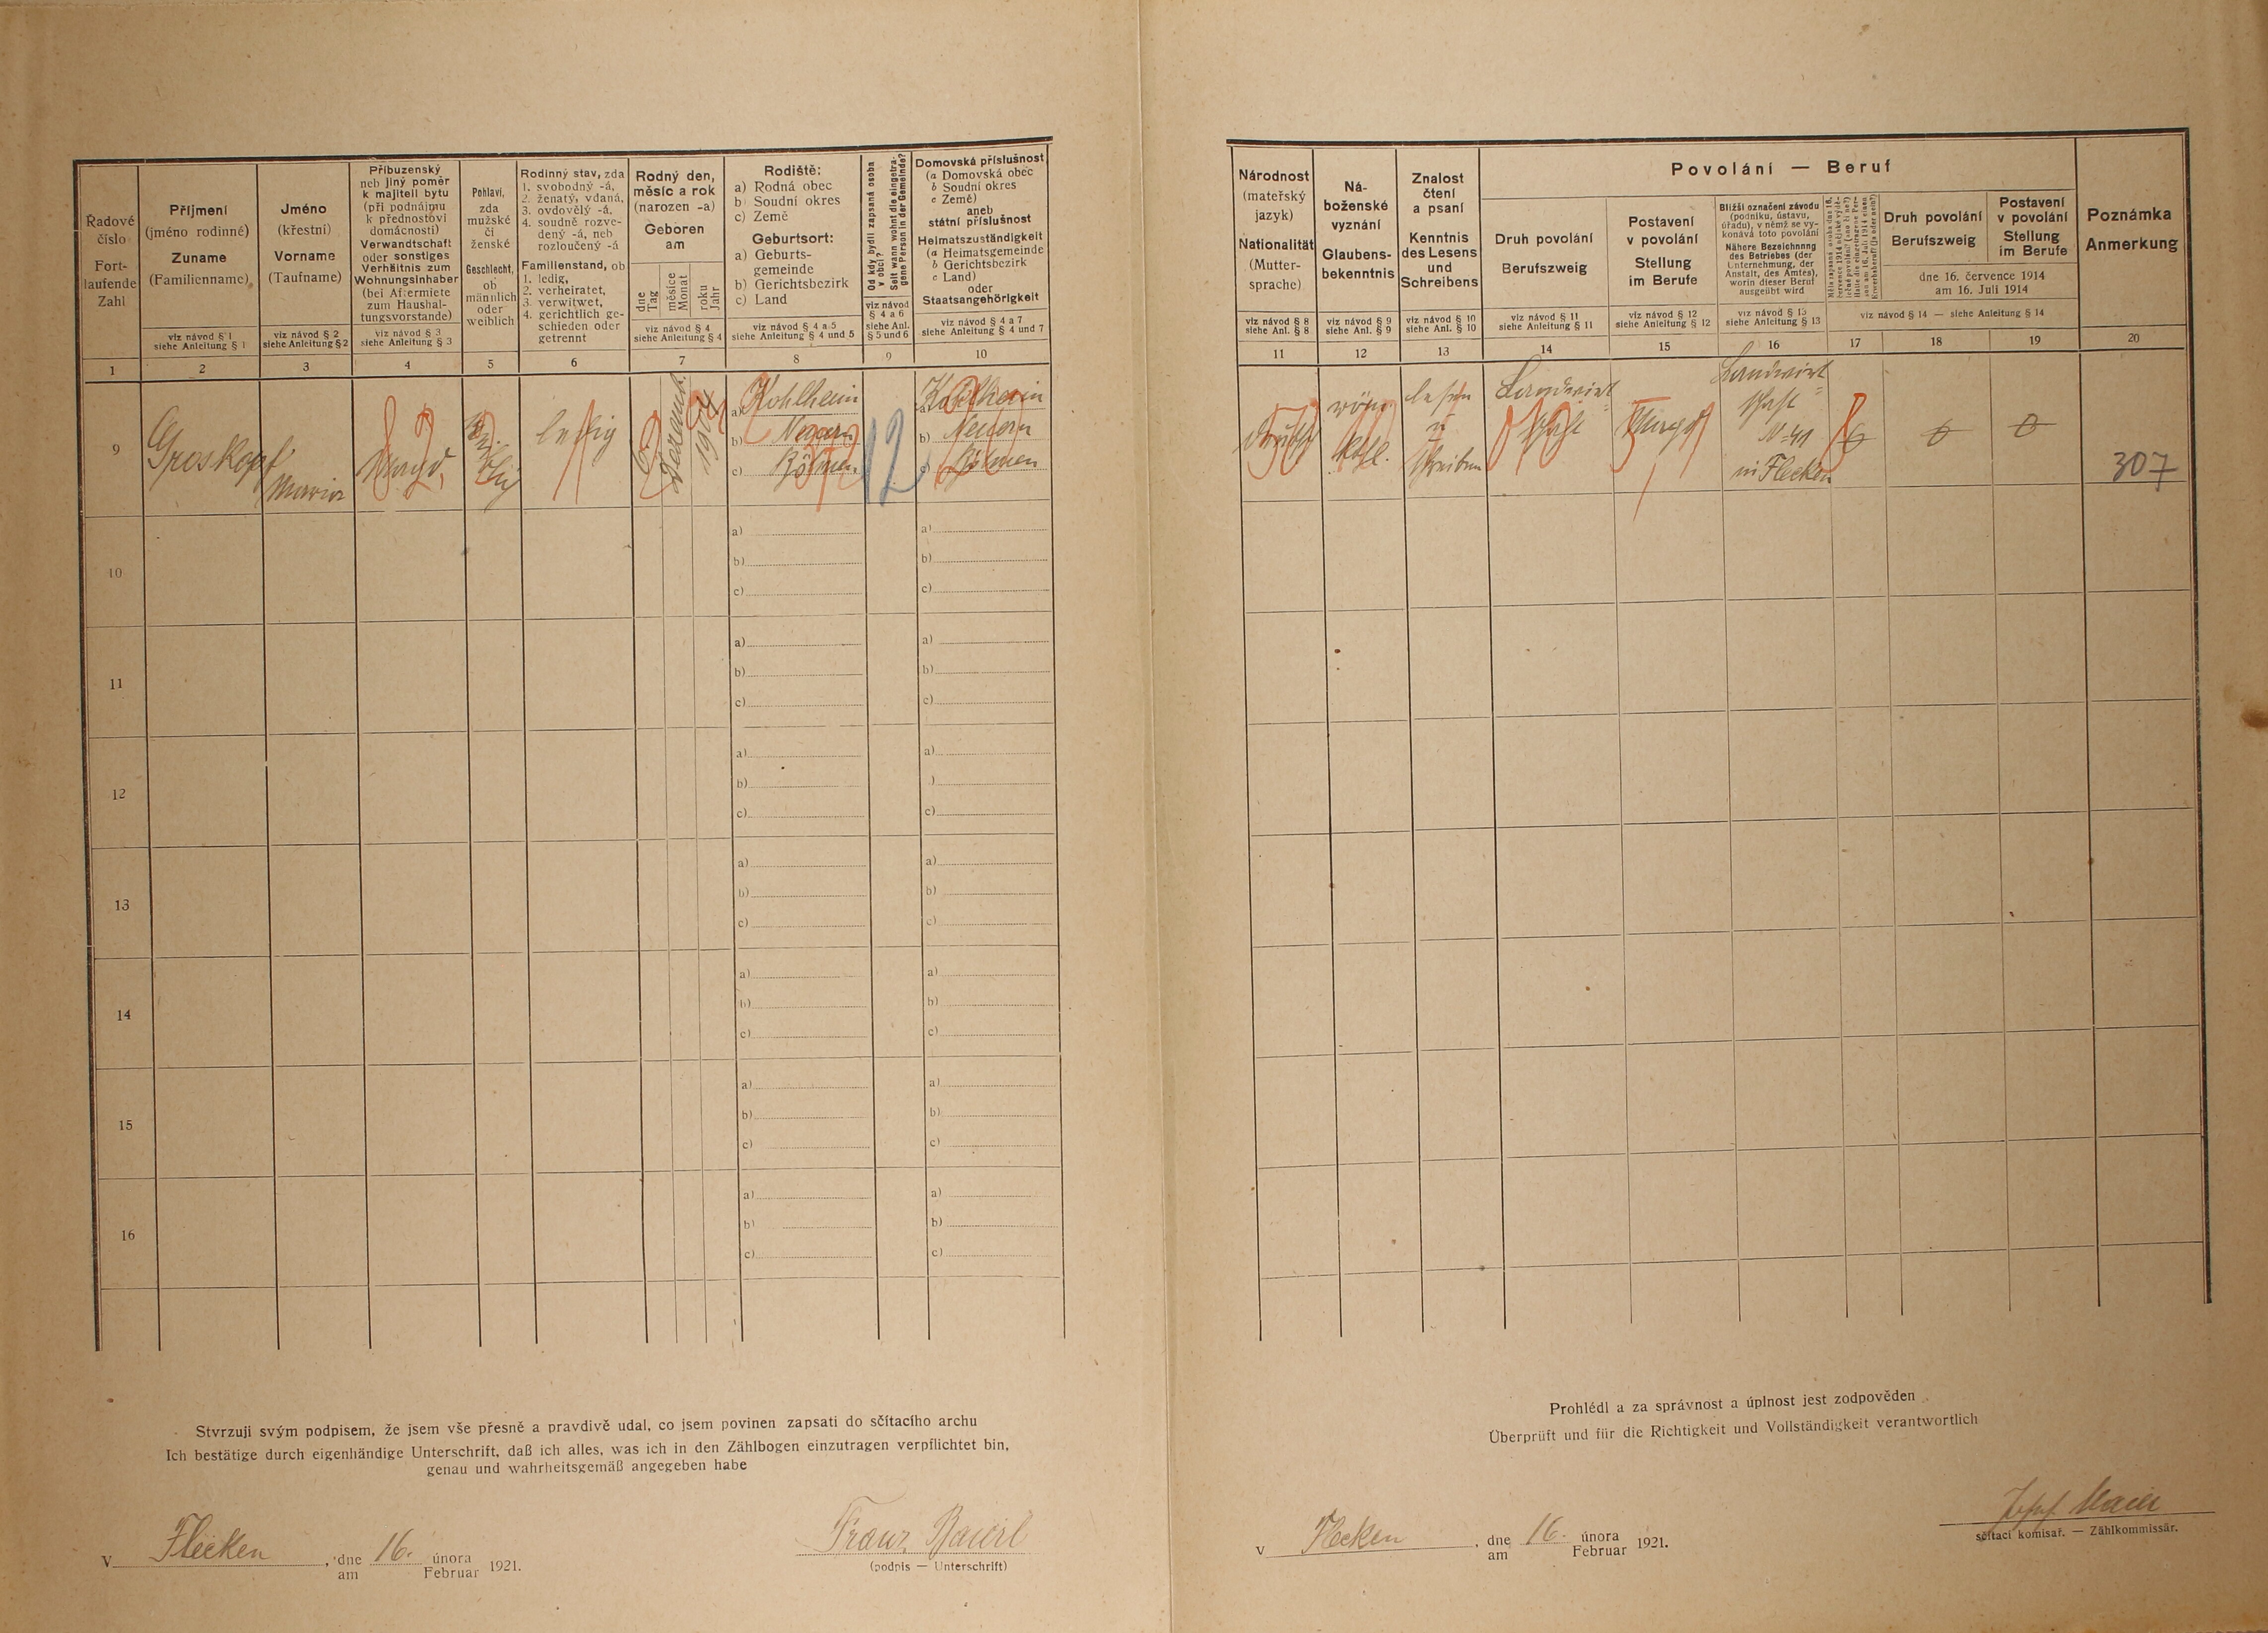 Řadové
číslo
Fort-
laufende
Zahl
Příjmení
(jméno rodinné)
Zuname
(Familienname)
viz návod § 1
siehe Anleitung § 1
Jméno
(křestní)
Vorname
(Taufname)
viz návod § 2
siehe Anleitung § 2
Příbuzenský
neb jiný poměr
k majiteli bytu
(při podnájmu
k přednostovi
domácnosti)
Verwandtschaft
oder sonstiges
Verhältnis zum
Wohnungsinhaber
(bei Aftermiete
zum Haushal-
tungsvorstande)
viz návod § 3
siehe Anleitung § 3
Pohlaví,
zda
mužské
či
ženské
Geschlecht,
ob
männlich
oder
weiblich
Rodinný stav, zda
1. svobodný -á,
2. ženatý, vdaná,
3. ovdovělý -á,
4. soudně rozve-
dený -á, neb
rozloučený -á
Familienstand, ob
1. ledig,
2. verheiratet,
3. verwitwet,
4. gerichtlich ge-
schieden oder
getrennt
Rodný den,
měsíc a rok
(narozen -a)
Geboren
am
dne
Tag
měsíce
Monat
roku
Jahr
viz návod § 4
siehe Anleitung § 4
Rodiště:
a) Rodná obec
b) Soudní okres
c) Země
Geburtsort:
a) Geburts-
gemeinde
b) Gerichtsbezirk
c) Land
viz návod § 4 a 5
siehe Anleitung § 4 und 5
Od kdy bydlí zapsaná osoba
v obci?
Seit wann wohnt die eingetra-
gene Person in der Gemeinde?
viz návod
§ 4 a 6
siehe Anl.
§ 5 und 6
Domovská příslušnost
(a Domovská obec
b Soudní okres
c Země)
aneb
státní příslušnost
Heimatszuständigkeit
(a Heimatsgemeinde
b Gerichtsbezirk
c Land)
oder
Staatsangehörigkeit
viz návod § 4 a 7
siehe Anleitung § 4 und 7
1 2 3 4 5 6 7 8 9 10
9
Groskopf
Maria
Magd
ledig
1904
a) Kohlheim
b) Neuern
c) Böhmen
12
a) Kohlheim
b) Neuern
c) Böhmen
10
a) a)
b) b)
c) c)
11
a) a)
b) b)
c) c)
12
a) a)
b) )
c) c)
13
a) a)
b) b)
c) c)
14
a) a)
b) b)
c) c)
15
a) a)
b) b)
c) c)
16
a) a)
b) b)
c) c)
Stvrzuji svým podpisem, že jsem vše přesně a pravdivě udal, co jsem povinen zapsati do sčítacího archu
Ich bestätige durch eigenhändige Unterschrift, daß ich alles, was ich in den Zählbogen einzutragen verpflichtet bin,
genau und wahrheitsgemäß angegeben habe
V Flecken, dne 16. února 1921.
am Februar
Franz Baierl
(podpis — Unterschrift)
Národnost
(mateřský
jazyk)
Nationalität
(Mutter-
sprache)
viz návod § 8
siehe Anl. § 8
Ná-
boženské
vyznání
Glaubens-
bekenntnis
viz návod § 9
siehe Anl. § 9
Znalost
čtení
a psaní
Kenntnis
des Lesens
und
Schreibens
viz návod § 10
siehe Anl. § 10
Povolání — Beruf
Druh povolání
Berufszweig
viz návod § 11
siehe Anleitung § 11
Postavení
v povolání
Stellung
im Berufe
viz návod § 12
siehe Anleitung § 12
Bližší označení závodu
(podniku, ústavu,
úřadu), v němž se vy-
konává toto povolání
Nähere Bezeichnung
des Betriebes (der
Unternehmung, der
Anstalt, des Amtes),
worin dieser Beruf
ausgeübt wird
viz návod § 13
siehe Anleitung § 13
Druh povolání
Berufszweig
Postavení
v povolání
Stellung
im Berufe
dne 16. července 1914
am 16. Juli 1914
viz návod § 14 — siehe Anleitung § 14
Poznámka
Anmerkung
11 12 13 14 15 16 17 18 19 20
röm.
kath.
lesen
u
schreiben
Landwirt-
schaft
Magd
Landwirt-
schaft
N=41
in Flecken
307
Prohlédl a za správnost a úplnost jest zodpověden
Überprüft und für die Richtigkeit und Vollständigkeit verantwortlich
v Flecken, dne 16. února 1921.
am Februar
Josef Maier
sčítací komisař. — Zählkommissär.